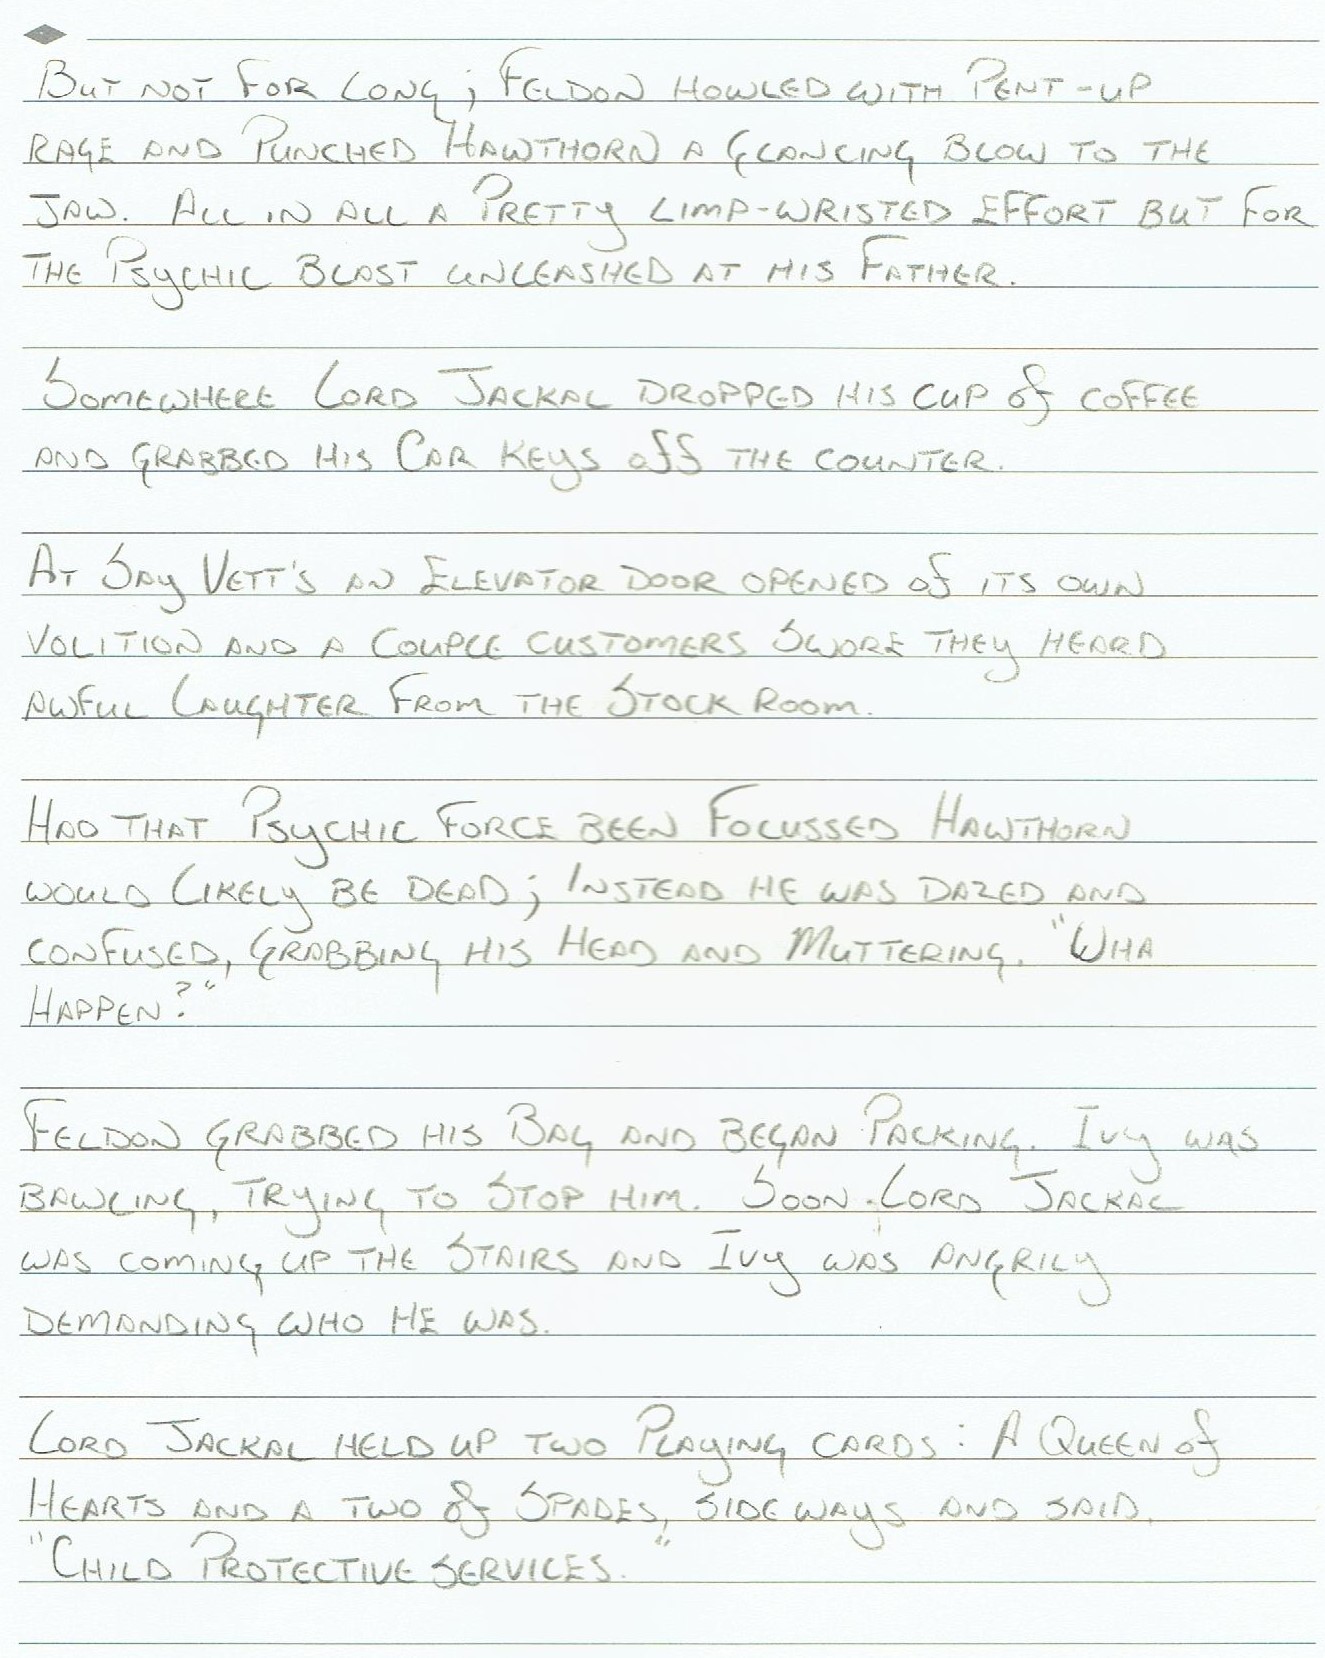 But not for long; Feldon howled with pent-up
rage and punched Hawthorn a glancing blow to the
jaw. All in all a pretty limp-wristed effort but for
the psychic blast unleashed at his father.
Somewhere Lord Jackal dropped his cup of coffee
and grabbed his car keys off the counter.
At Say Vett's an elevator door opened of its own
volition and a couple customers swore they heard
awful laughter from the stock room.
Had that psychic force been focussed Hawthorn
would likely be dead; instead he was dazed and
confused, grabbing his head and muttering. "Wha
happen?"
Feldon grabbed his bag and began packing. Ivy was
bawling, trying to stop him. Soon Lord Jackal
was coming up the stairs and Ivy was angrily
demanding who he was.
Lord Jackal held up two playing cards: A Queen of
Hearts and a two of Spades, sideways and said,
"Child Protective Services."